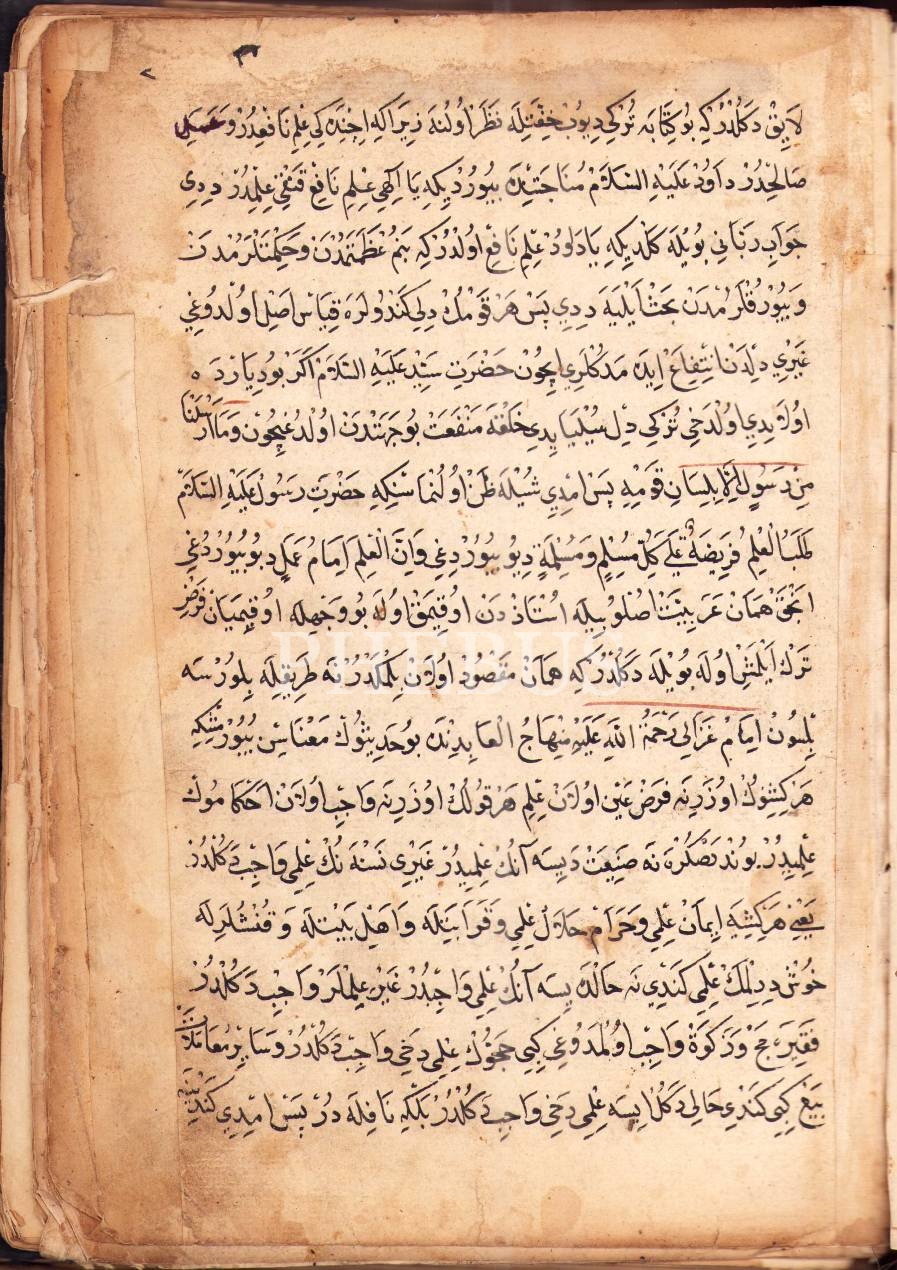 لَايِقْ دَكُلْدُرْ كِه بُو كِتَابَه تُرْكِي دِيُوبْ خِفَّتِلَه نَظَرْ اُولُنَه زِيرَا كه اِچِنْدَه كِي عِلْمِ نَافِعْدُرْ وَعَمَلِ
صَالِحْدُرْ دَاوُدْ عَلَيْهِ السَّلَامْ مُنَاجَتِنْدَه بُيُورْدِيكِه يَا اِلٰهِي عِلْمِ نَافِعْ قَنْغِي عِلِمْدُرْ دِدِي
جَوَابِ رَبَّانِي بُويْلَه كَلْدِيكِه يَا دَاوُدْ عِلْمِ نَافِعْ اُولْدُرْ كِه بَنُمْ عَظَمَتُمْدَنْ وَحِكْمَتْلَرُمْدَنْ
وَبُيُورُقْلَرُمْدَنْ بَحْثْ اَيْلَيَه دِدِي پَسْ هَرْ قَوْمُكْ دِلِي كَنْدُولَرَه قِيَاسْ اَصِلْ اُولْدُوغِي
غَيْرِي دِلْدَنْ اِنْتِفَاعْ اِيدَه مَدُكْلَرِي اِچُونْ حَضْرَتِ سَيِّدْ عَلَيْهِ السَّلَامْ اَكَرْ بُو دِيَارْدَه
اُولَايْدِي اُولْدَخِي تُرْكِي دِلْ سُيْلَيَايِدِي خَلْقَه مَنْفَعَتْ بُو جَهَتْدَنْ اُولْدُغِيچُونْ وَمَا اَرْسَلْنَا
مِنْ رَسُولٍ اِلَّا بِلِسَانِ قَوْمِهِ پَسْ اِمْدِي شُيْلَه ظَنْ اُولُنْمَاسُنْكِه حَضْرَتِ رَسُولْ عَلَيْهِ السَّلَامْ
طَلَبُ الْعِلْمِ فَرِيضَةٌ عَلَى كُلِّ مُسْلِمٍ وَمُسْلِمَةٍ دِيُو بُيُورْدِغِي وَاِنَّ الْعِلْمَ اِمَامُ عَمَلٍ دِيُو بُيُورْدُغِي
اَنْجَقْ هَمَانْ عَرَبِيَّتْ اُصْلُوبِيلَه اُسْتَاذْدَنْ اُوقِيمَقْ اُولَه بُو وَجْهِلَه اُوقِيمَيَانْ فَرْضِ
تَرْكْ اَيْلَمِشْ اُولَه بُويْلَه دَكُلْدُرْ كِه هَمَانْ مَقْصُودْ اُولَانْ بِلْمَكْدُرْ نَه طَرِيقِلَه بِلُورْسَه
بِلْسُونْ اِمَامْ غَزَالِي رَحْمَةُ اللّٰهِ عَلَيْهِ مِنْهَاجُ الْعَابِدِينْدَه بُو حَدِيثُوكْ مَعْنَاسِنْ بُيُورْمِشْكِه
هَرْ كِشِنُوكْ اُوزَرِنَه فَرْضِ عَيْنْ اُولَانْ عِلْمِ هَرْ قُولُكْ اُوزَرِنَه وَاجِبْ اُولَانْ اَحْكَامُوكْ
عِلْمِيدُرْ بُونْدَنْصُكْرَه نَه صَنِيعَتْ دَيِسَه اَنُكْ عِلْمِيدُرْ غَيْرِي نَسْنَه نُكْ عِلْمِي وَاجِبْ دَكُلْدُرْ
يَعْنِي هَرْ كِشِيَه اِيمَانْ عِلْمِي وَحَرَامْ حَلَالْ عِلْمِي وَقَرَابَتِلَه وَاَهْلِ بَيْتِلَه وَقُنْشُلَرِلَه
خُوشْ دِرِلْمَكْ عِلْمِي كَنْدِي نَه حَالْدَه يِسَه اَنُكْ عِلْمِي وَاجِبْدُرْ غَيْرِ عِلِمْلَرْ وَاجِبْ دَكُلْدُرْ
فَقِيرَه حَجْ وَزَكٰوةْ وَاجِبْ اُولْمَدُوغِي كِبِي حَجُّوكْ عِلْمِي دَخِي وَاجِبْ دَكُلْدُرْ وَسَايِرْ مُعَامَلَاتْ
بَيْعْ كِبِي كَنْدِي حَالِي دَكُلْ اِيسَه عِلْمِي دَخِي وَاجِبْ دَكُلْدُرْ بَلْكِه نَافِلَه دُرْ پَسْ اِمْدِي
PHEBUS